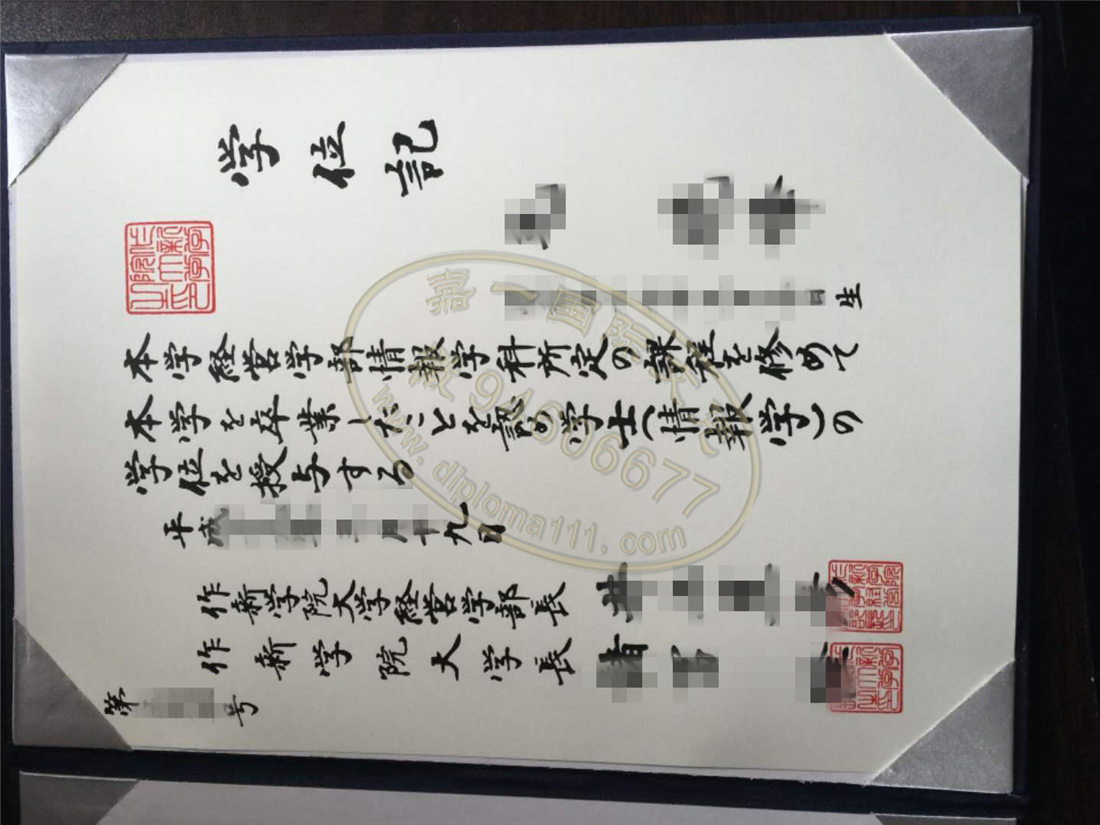 学位記
生
本学経営学部情報学科所定の課程を修めて
本学を卒業したことを認め学士(情報学)の
学位を授与する
平成 三月十九日
作新学院大学経営学部長
作新学院大学長
第 号
94606677
www.diploma111.com